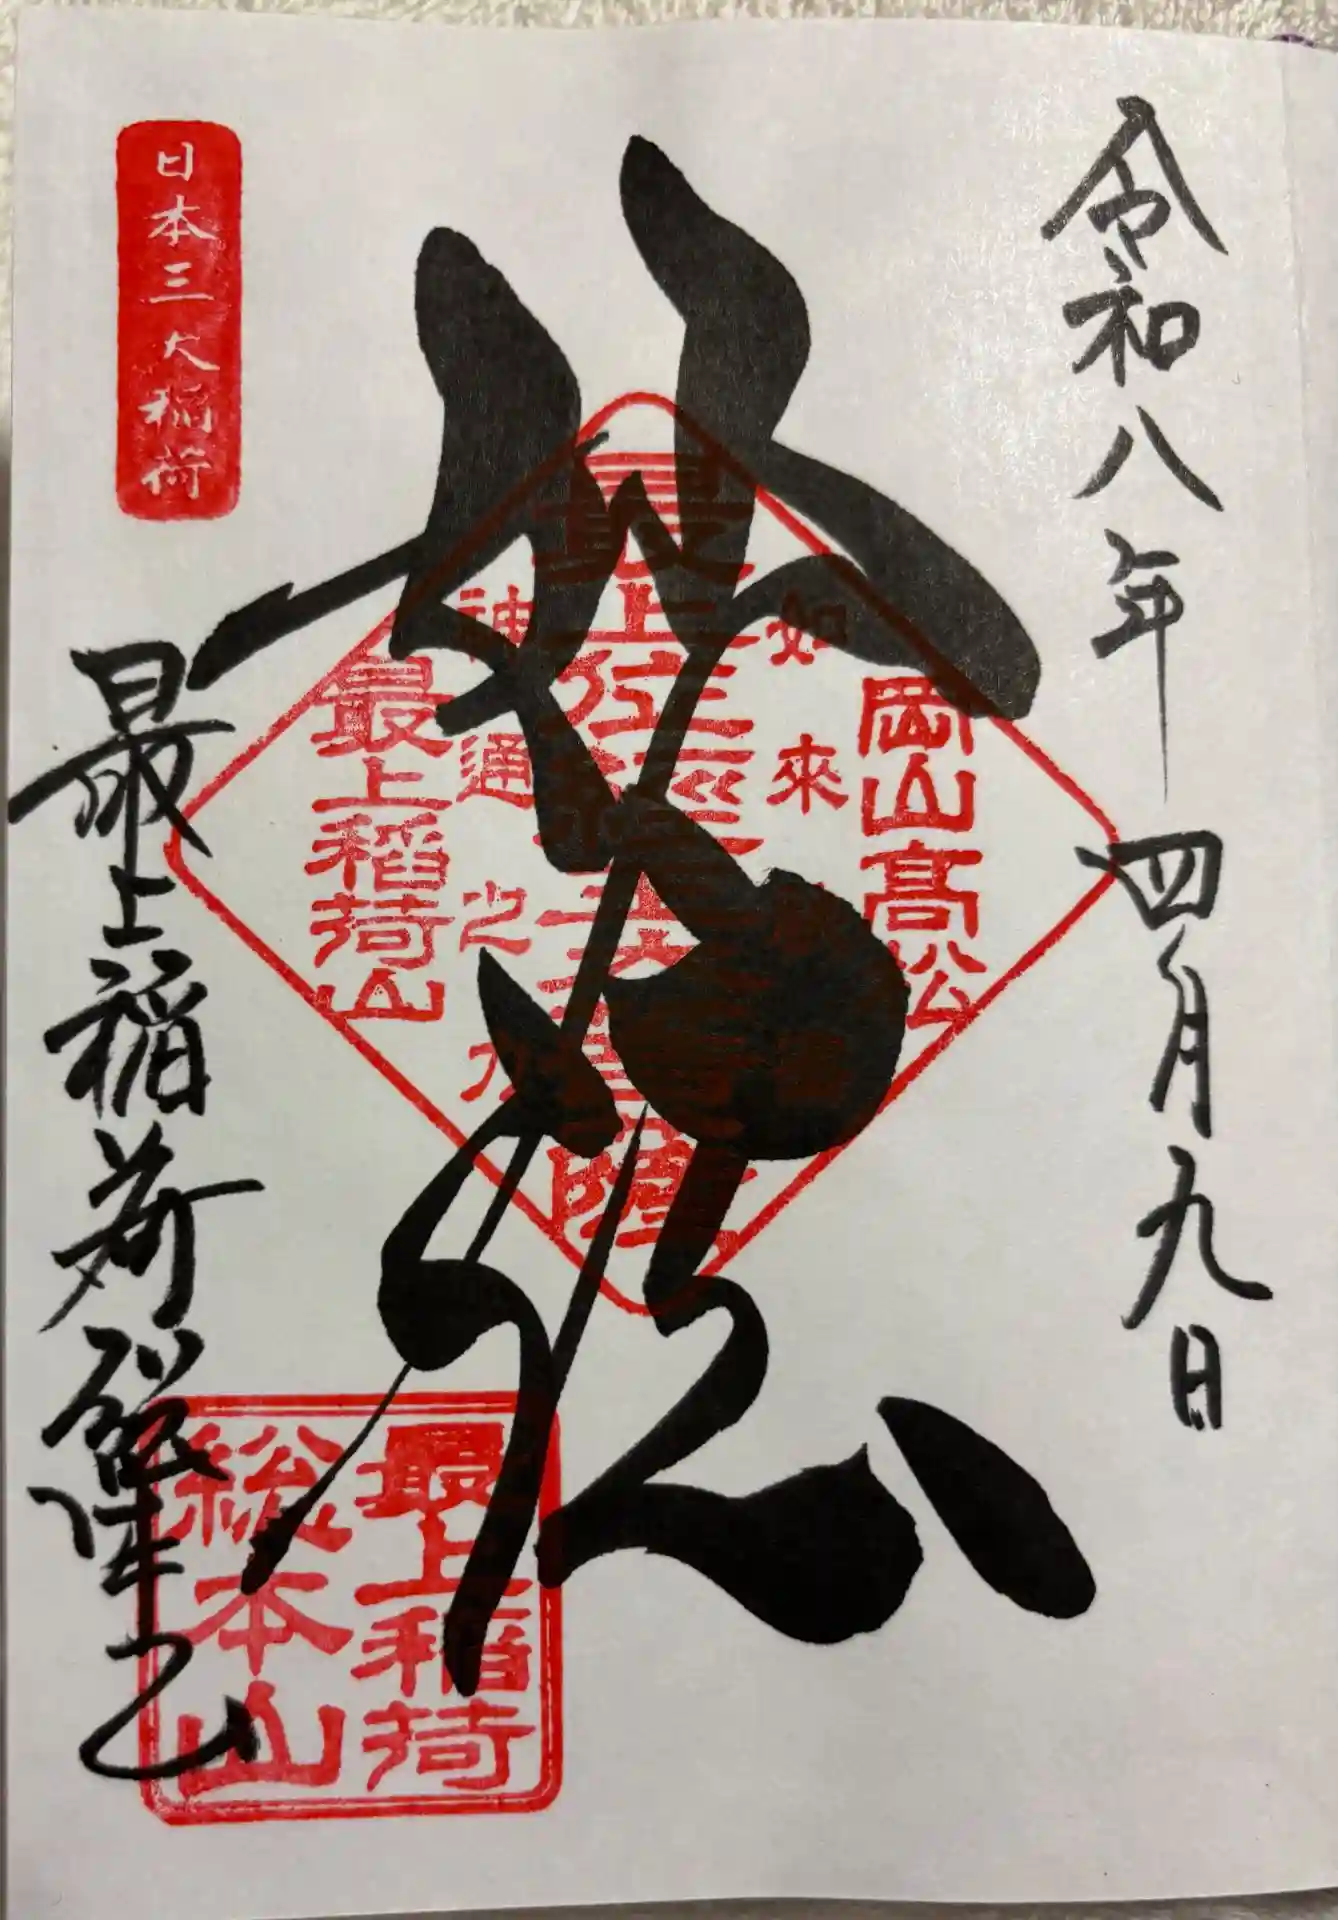 令和八年四月九日
妙法
岡山高松
如來
最上位經王大菩薩
神通之力
最上稲荷山
日本三大稲荷
最上稲荷
最上稲荷
総本山